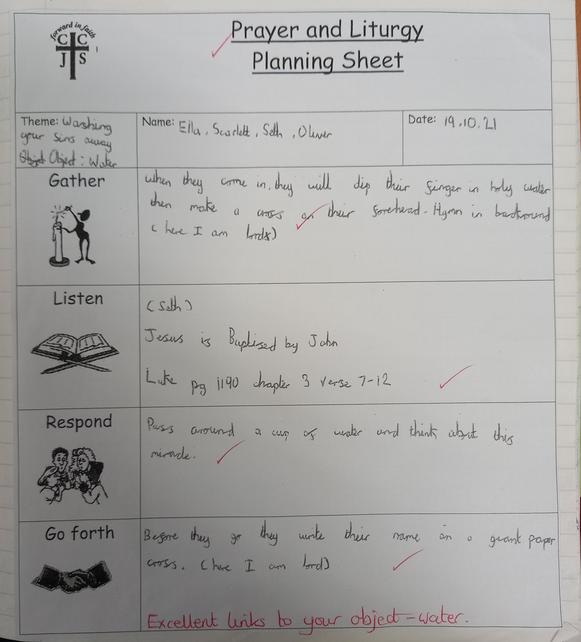 forward in faith
C C
J S
Prayer and Liturgy
Planning Sheet
Theme: Washing
your sins away
Object: Water
Name: Ella, Scarlett, Seth, Oliver
Date: 19.10.21
Gather
when they come in, they will dip their finger in holy water
then make a cross on their forehead - Hymn in background
(here I am lord)
Listen
(Seth)
Jesus is Baptised by John
Luke pg 1190 chapter 3 verse 7-12
Respond
Pass arround a cup of water and think about this
miracle.
Go forth
Before they go they write their name on a giant paper
cross. (here I am lord)
Excellent links to your object - water.